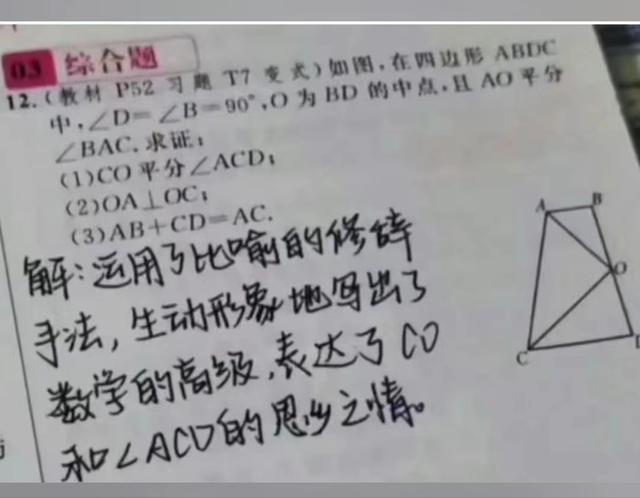 03 综合题
12.(教材 P52 习题 T7 变式)如图,在四边形 ABDC
中,∠D=∠B=90°,O 为 BD 的中点,且 AO 平分
∠BAC.求证:
(1)CO 平分∠ACD;
(2)OA⊥OC;
(3)AB+CD=AC.
解:运用了比喻的修辞
手法,生动形象地写出了
数学的高级,表达了CO
和∠ACD的思乡之情。
A
B
O
C